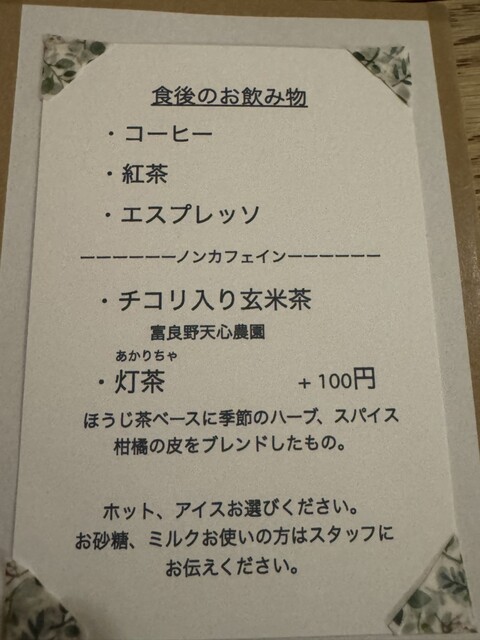 食後のお飲み物
・コーヒー
・紅茶
・エスプレッソ
ーーーーーーノンカフェインーーーーーー
・チコリ入り玄米茶
富良野天心農園
あかりちゃ
・灯茶 + 100円
ほうじ茶ベースに季節のハーブ、スパイス
柑橘の皮をブレンドしたもの。
ホット、アイスお選びください。
お砂糖、ミルクお使いの方はスタッフに
お伝えください。